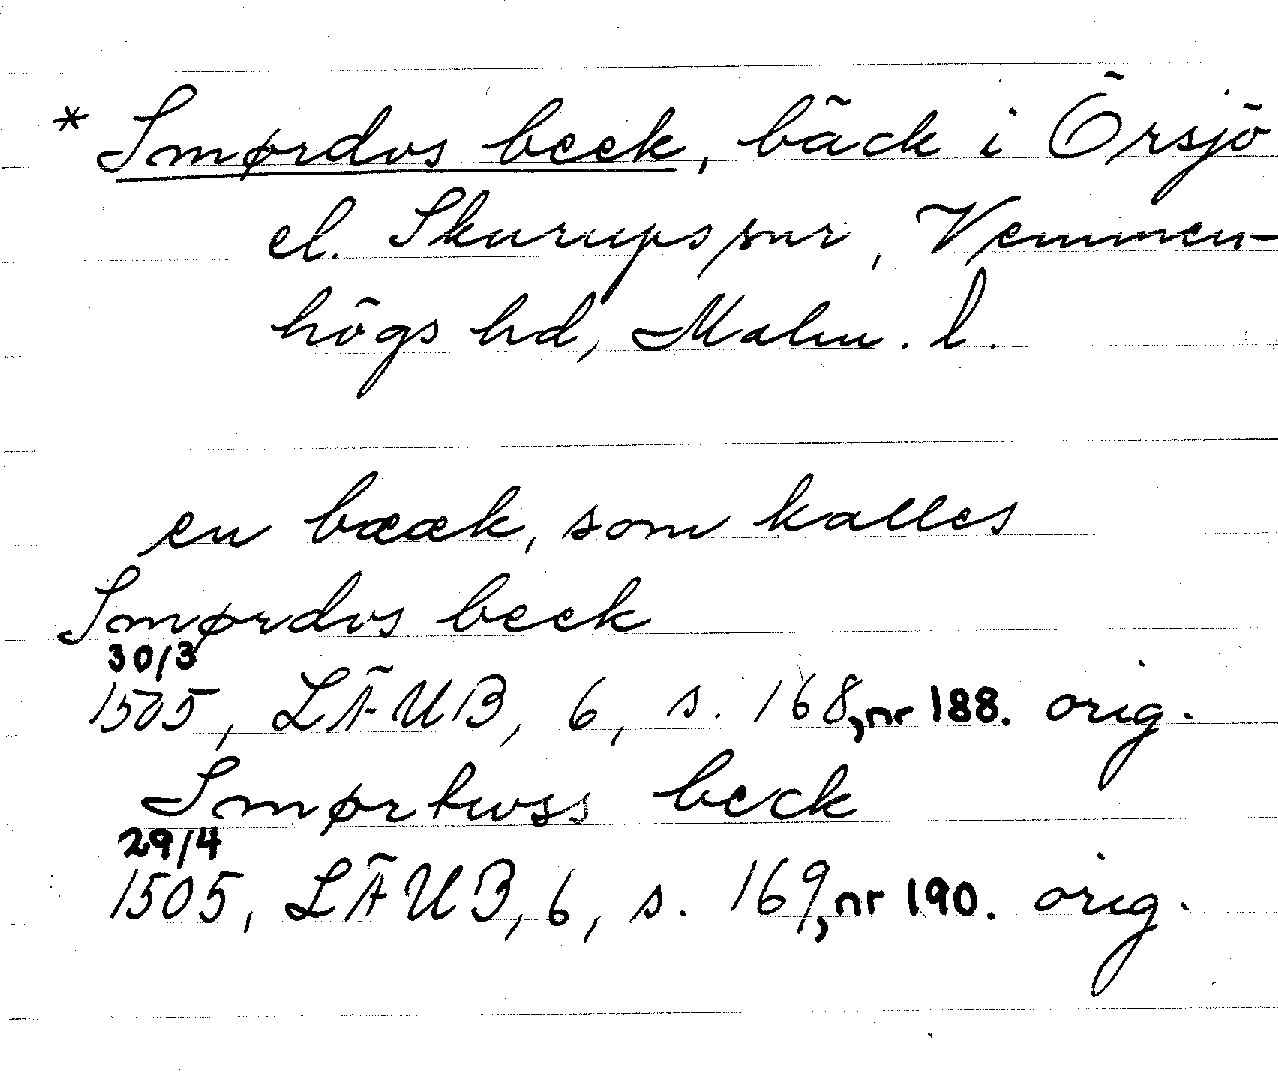 * Smørdvs beek, bäck i Örsjö
el. Skurups snr, Vemmen-
högs hd, Malm. l.
en bææk, som kalles
Smørdvs beek
30/3
1505, LÄUB, 6, s. 168, nr 188. orig.
Smørtwss beck
29/4
1505, LÄUB, 6, s. 169, nr 190. orig.